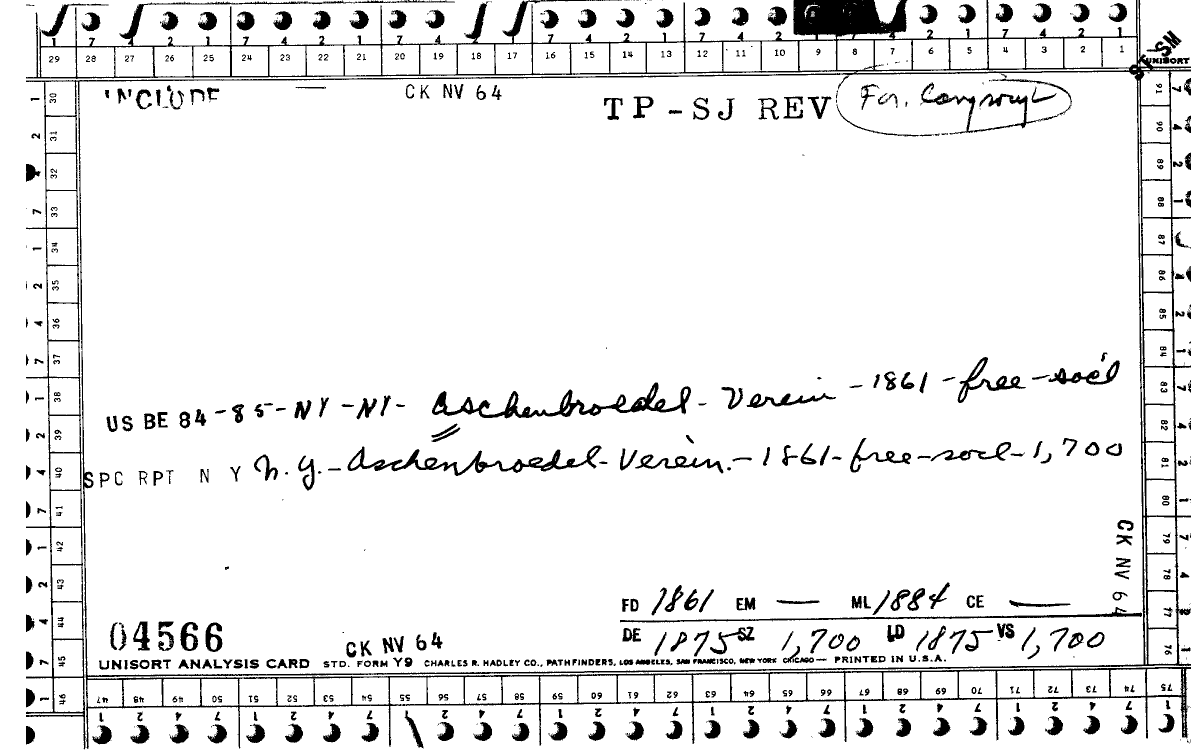 29 28 27 26 25 24 23 22 21 20 19 18 17 16 15 14 13 12 11 10 9 8 7 6 5 4 3 2 1
UNISORT
INCLUDE — CK NV 64
TP-SJ REV
For.
US BE 84-85-NY-NY- Aschenbroedel-Verein-1861-free-soc'l
SPC RPT N Y N.Y.-Aschenbroedel-Verein.-1861-free-socl-1,700
CK NV 64
FD 1861 EM — ML 1884 CE —
DE 1875 SZ 1,700 LD 1875 VS 1,700
04566
CK NV 64
UNISORT ANALYSIS CARD STD. FORM Y9 CHARLES R. HADLEY CO., PATHFINDERS, LOS ANGELES, SAN FRANCISCO, NEW YORK CHICAGO — PRINTED IN U.S.A.
30 31 32 33 34 35 36 37 38 39 40 41 42 43 44 45 46
47 48 49 50 51 52 53 54 55 56 57 58 59 60 61 62 63 64 65 66 67 68 69 70 71 72 73 74 75
76 77 78 79 80 81 82 83 84 85 86 87 88 89 90 91